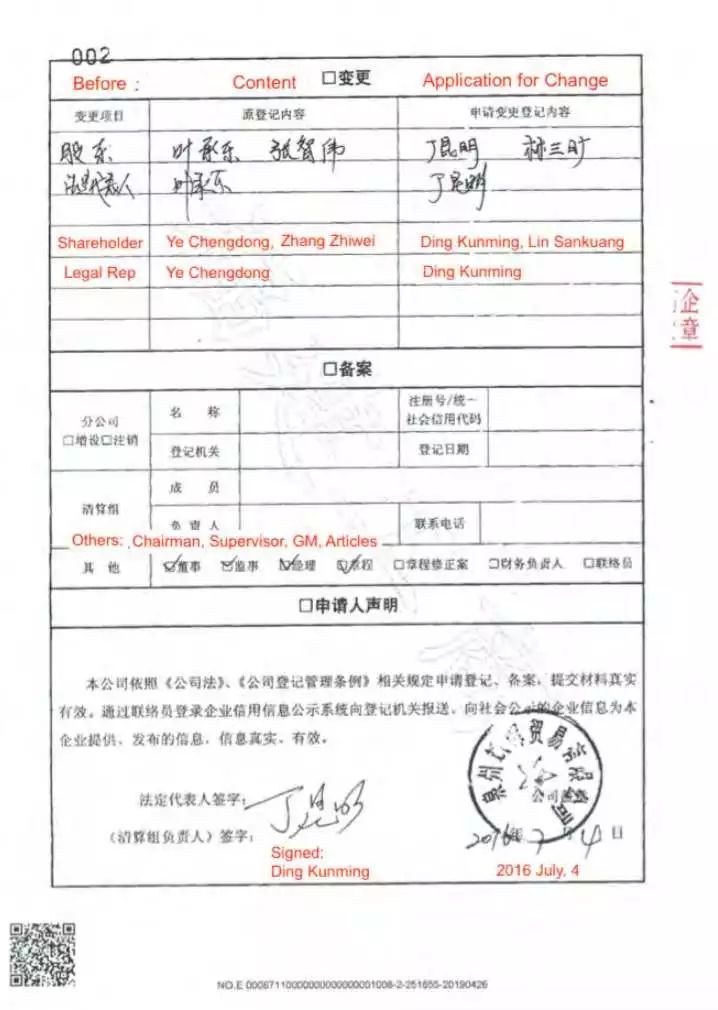 002
Before : Content □变更 Application for Change
变更项目 原登记内容 申请变更登记内容
股东 叶承东 张智伟 丁昆明 林三旷
法定代表人 叶承东 丁昆明
Shareholder Ye Chengdong, Zhang Zhiwei Ding Kunming, Lin Sankuang
Legal Rep Ye Chengdong Ding Kunming
企
章
□备案
分公司
□增设□注销
名 称
注册号/统一
社会信用代码
登记机关 登记日期
清算组
成 员
负 责 人 联系电话
Others: Chairman, Supervisor, GM, Articles
其 他 ☑董事 ☑监事 ☑经理 ☑章程 □章程修正案 □财务负责人 □联络员
□申请人声明
本公司依照《公司法》、《公司登记管理条例》相关规定申请登记、备案，提交材料真实
有效。通过联络员登录企业信用信息公示系统向登记机关报送、向社会公示的企业信息为本
企业提供、发布的信息，信息真实、有效。
法定代表人签字：丁昆明
（清算组负责人）签字：
泉州 贸易有限 司
公司盖
2016年7月4日
Signed:
Ding Kunming
2016 July, 4
NO.E 00067110000000000000001008-2-251655-20190426